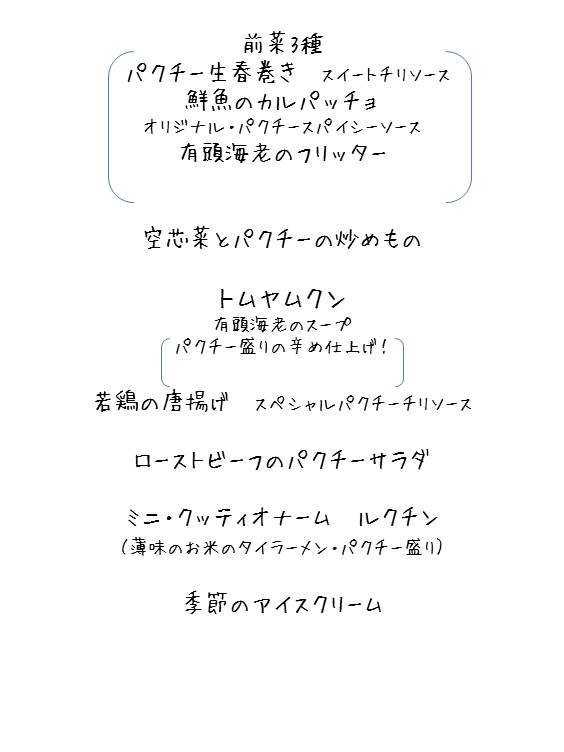 前菜3種
パクチー生春巻き　スイートチリソース
鮮魚のカルパッチョ
オリジナル・パクチースパイシーソース
有頭海老のフリッター
空芯菜とパクチーの炒めもの
トムヤムクン
有頭海老のスープ
パクチー盛りの辛め仕上げ！
若鶏の唐揚げ　スペシャルパクチーチリソース
ローストビーフのパクチーサラダ
ミニ・クッティオナーム　ルクチン
（薄味のお米のタイラーメン・パクチー盛り）
季節のアイスクリーム